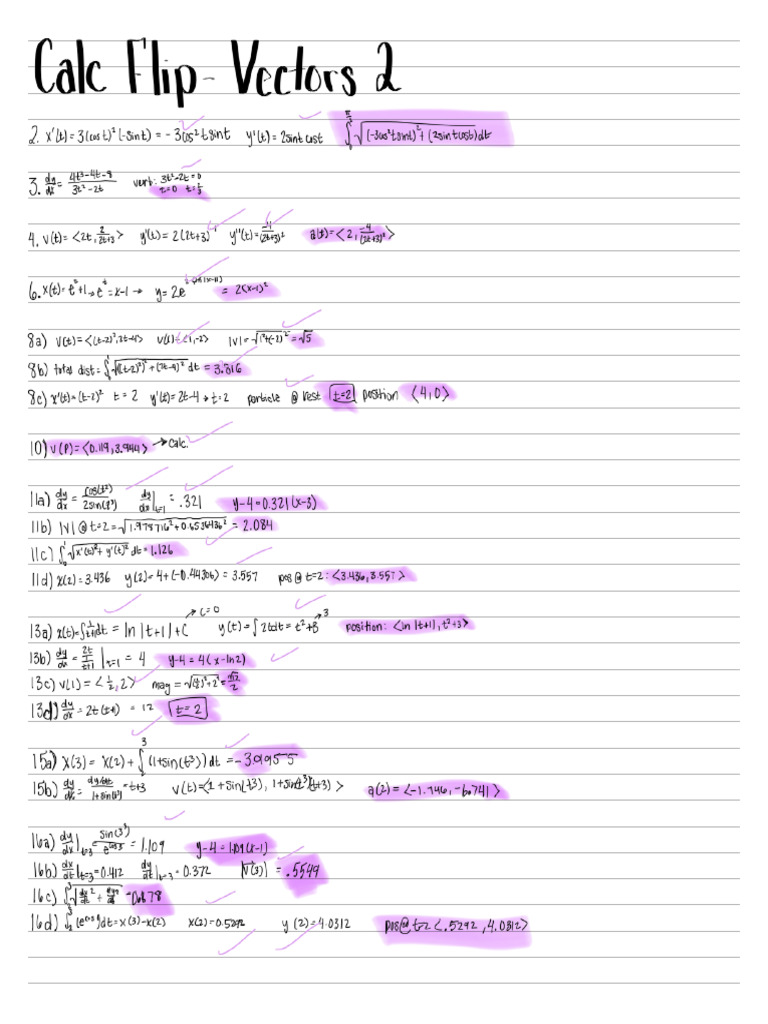 Calc Flip - Vectors 2
2. x'(t) = 3(cos t)² (-sin t) = -3cos² t sin t   y'(t) = 2 sin t cos t   ∫ √((-3cos² t sin t)² + (2 sin t cos t) dt
3. dy/dx = (4t³-4t-8)/(3t²-2t)   vert: 3t²-2t=0   t=0
4. v(t) = <2t, 2/(2t+3)>   y'(t) = 2(2t+3)⁻¹   y''(t) = -4/(2t+3)²   a(t) = <2, -4/(2t+3)²>
6. x(t) = eᵗ+1 → eᵗ = x-1 → y = 2e = 2(x-1)²
8a) v(t) = <(t-2)², 2t-4>   v(1) = <1,-2>   |v| = √(1²+(-2)²) = √5
8b) total dist = ∫ √((t-2)²)² + (2t-4)² dt = 3.816
8c) x'(t) = (t-2)²   t = 2   y'(t) = 2t-4 → t=2   particle @ rest t=2   position <4,0>
10) v(P) = <0.119, 3.944> → calc.
11a) dy/dx = cos(t²)/2sin(t³)   dy/dx|t=1 = .321   y-4 = 0.321(x-3)
11b) |v| @ t=2 = = 2.084
11c) ∫ √(x'(t)² + y'(t)²) dt = 1.126
11d) x(2) = 3.436   y(2) = 4+(-0.44306) = 3.557   pos @ t=2: <3.436, 3.557>
13a) x(t) = ∫ 1/(t+1) dt = ln |t+1| + C → C=0   y(t) = ∫ 2t dt = t²+ → 3   position: <ln |t+1|, t²+3>
13b) dy/dx = 2t/(1/(t+1)) |t=1 = 4   y-4 = 4(x-ln2)
13c) v(1) = <1/2, 2>   mag = √((1/2)²+2²) = √17/2
13d) dy/dx = 2t(t+1) = 12   t=2
15a) x(3) = x(2) + ∫ 3 (1+sin(t³)) dt =
15b) dy/dx = (dy/dt)/(1+sin(t³)) = t+3   v(t) = <1+sin(t³), 1+sin(t³)(t+3)>   a(2) = <-1.746, -6.741>
16a) dy/dx|t=3 = sin(3³)/ = 1.109   y-4 = 1.109(x-1)
16b) dx/dt|t=3 = 0.412   dy/dt|t=3 = 0.372   |v(3)| = .5549
16c) ∫ √
16d) ∫ dt = x(3) - x(2)   x(2) = 0.5292   y(2) = 4.0312   pos @ t=2 <.5292, 4.0312>